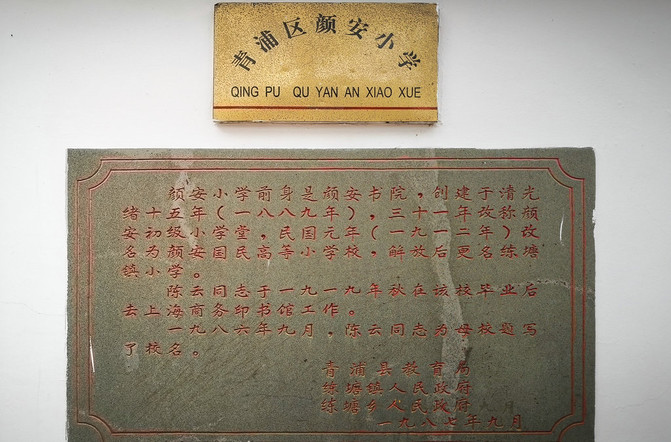 青浦区颜安小学
QING PU QU YAN AN XIAO XUE
颜安小学前身是颜安书院，创建于清光
绪十五年（一八八九年），三十一年改称颜
安初级小学堂，民国元年（一九一二年）改
名为颜安国民高等小学校，解放后更名练塘
镇小学。
陈云同志于一九一九年秋在该校毕业后
去上海商务印书馆工作。
一九八六年九月，陈云同志为母校题写
了校名。
青浦县教育局
练塘镇人民政府
练塘乡人民政府
一九八七年九月